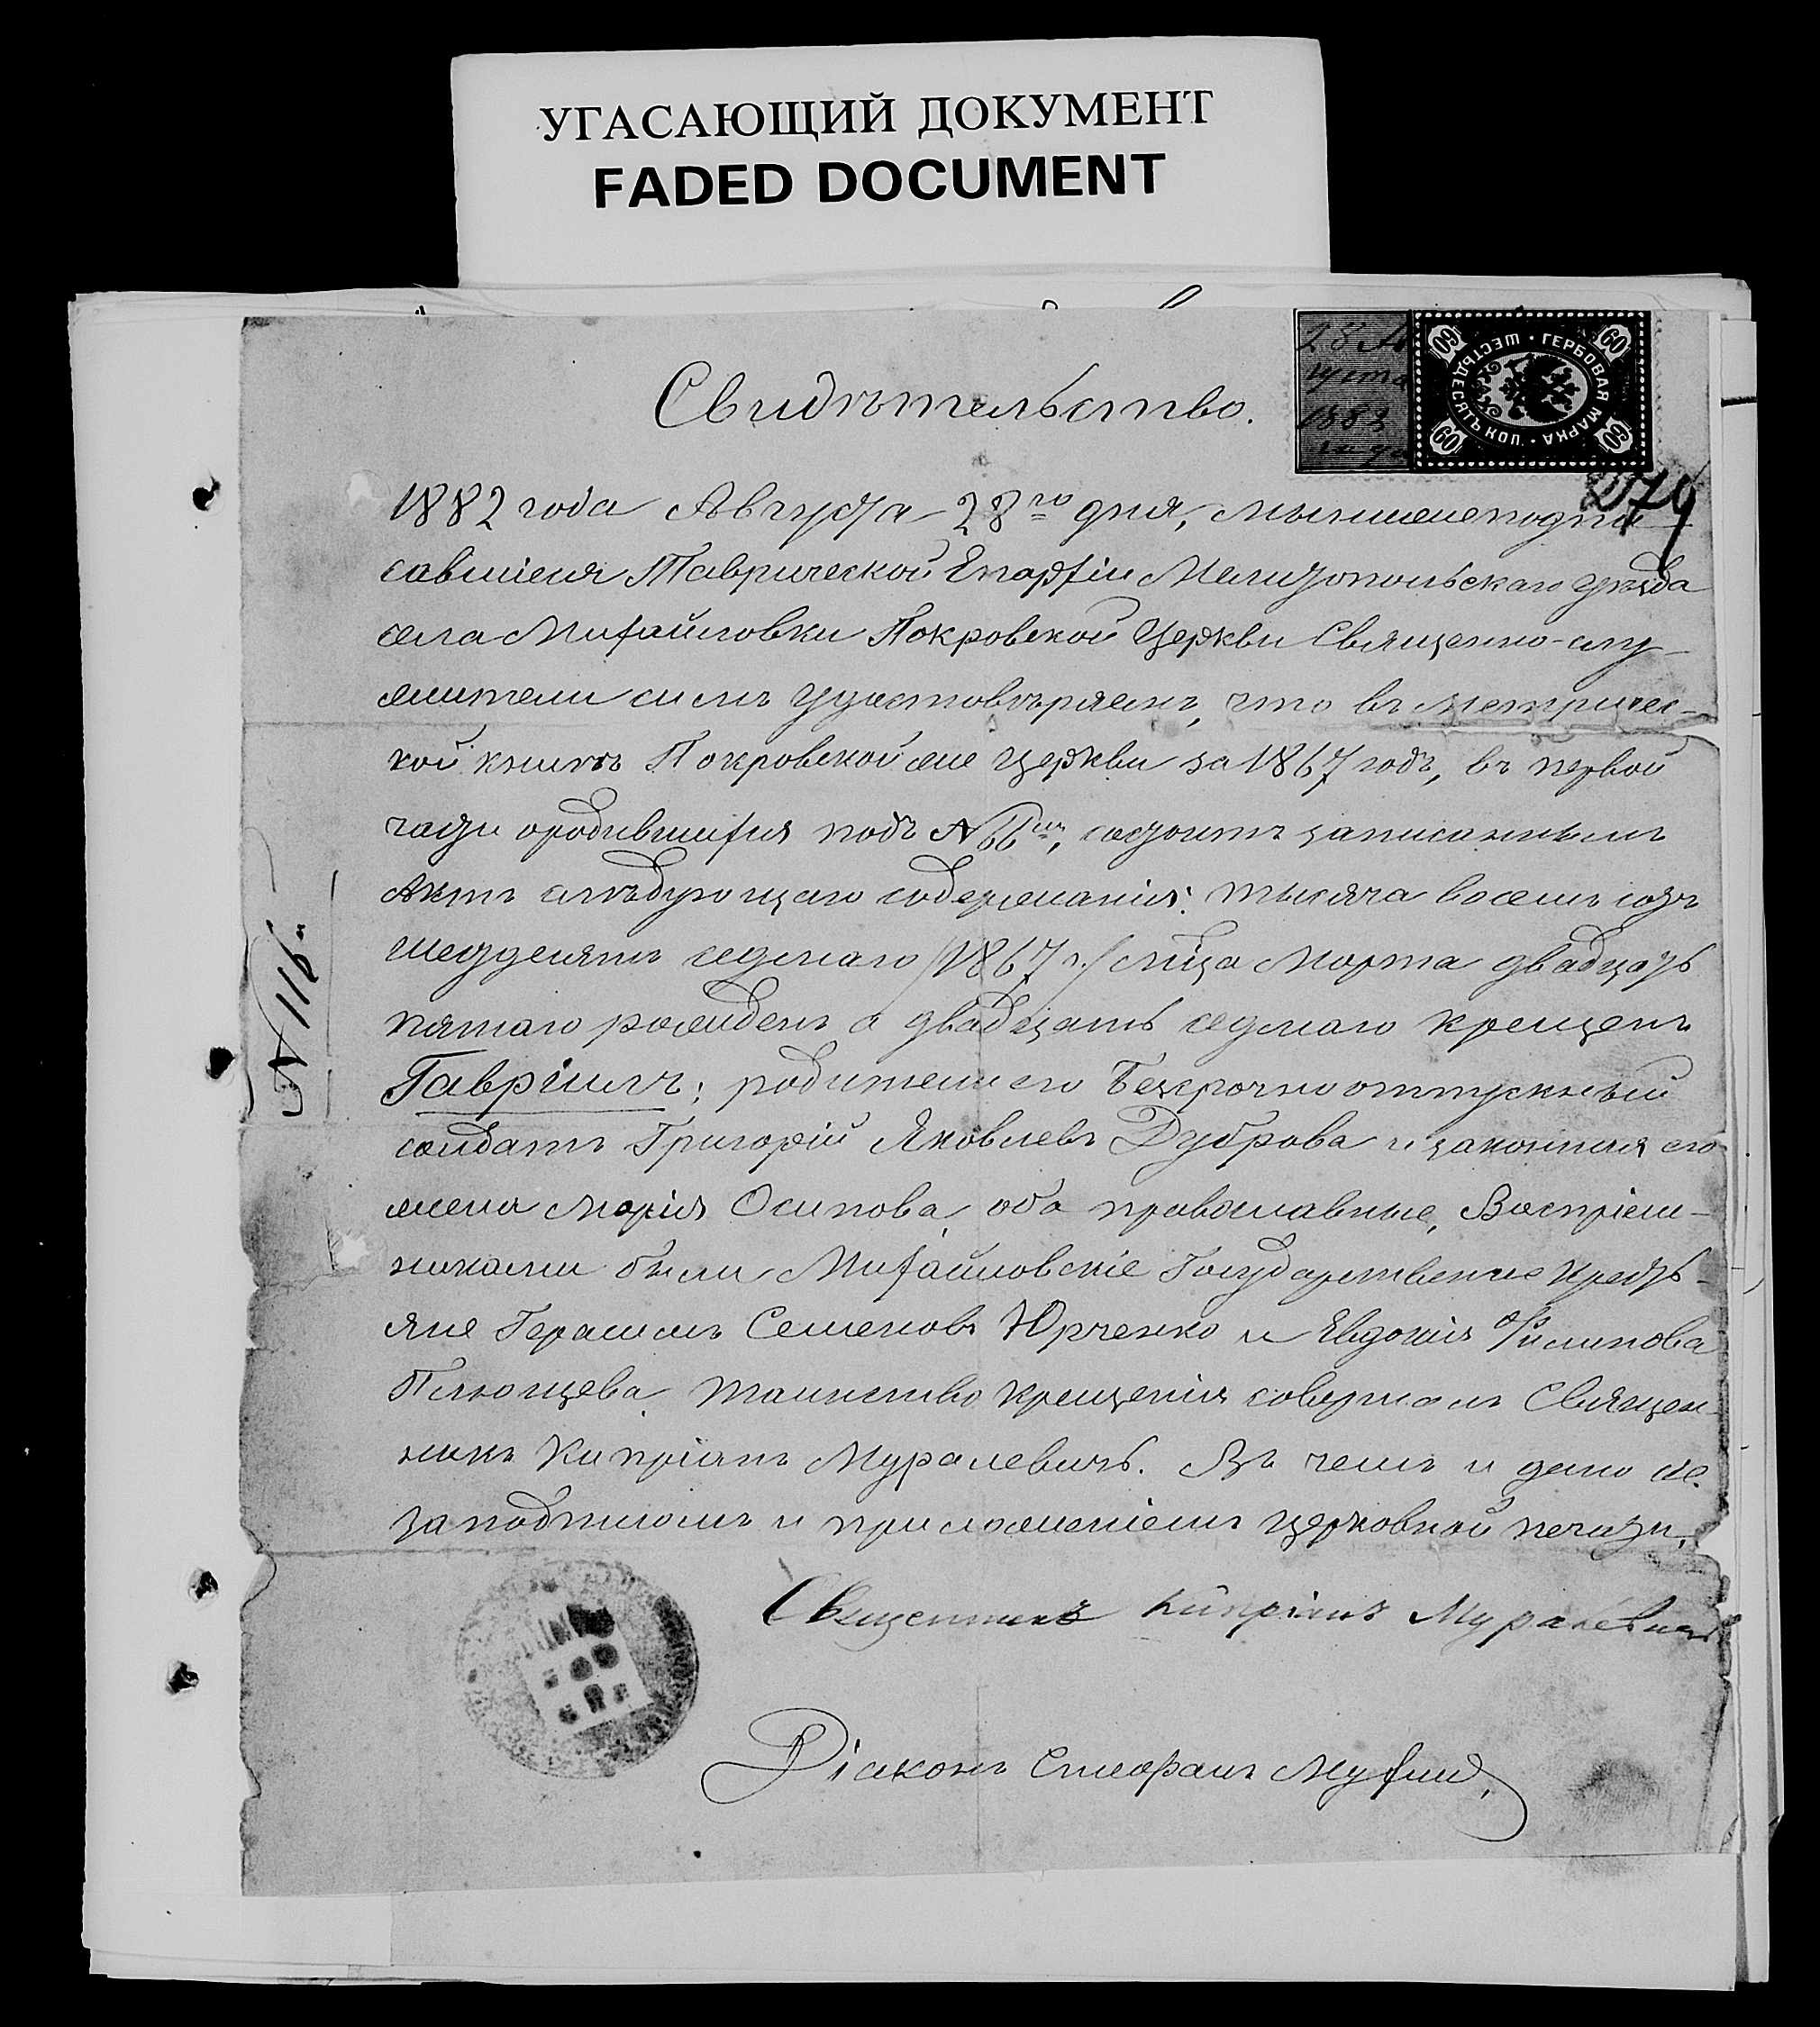 УГАСАЮЩИЙ ДОКУМЕНТ
FADED DOCUMENT
28 Ав
густа
1883
года
ГЕРБОВАЯ МАРКА • ШЕСТЬДЕСЯТЪ КОП. •
60 60 60 60
Свидѣтельство.
279
1882 года Августа 28го дня, мынижеподпи-
савшіеся Таврической Епархіи Мелитопольскаго уѣзда
села Михайловки Покровской Церкви Священно-слу-
жители симъ удостовѣряемъ, что въ метричес-
кой книгѣ Покровской же церкви за 1867 годъ, въ первой
части о родившихся подъ № 66мъ, состоитъ записаннымъ
Актъ слѣдующаго содержанія: тысяча восемь сотъ
шестдесятъ седмаго /1867 г./ мѣца Марта двадцать
пятаго рожденъ а двадцать седмаго крещенъ
Гавріилъ; родители его Безсрочно отпускный
солдатъ Григорій Яковлевъ Дуброва и законная его
жена Марія Осипова, оба православные, Воспріем-
никами были Михайловскіе Государственые крестъ-
яне Герасимъ Семеновъ Юрченко и Евдокія Филипова
Плющева Таинство крещенія совершалъ Священ-
никъ Кипріанъ Муралевичъ. Въ чемъ и дано се.
за подписомъ и приложеніемъ церковной печати.
№ 116.
Священникъ Кипріанъ Муралевичъ
Діаконъ Стефанъ Мухин